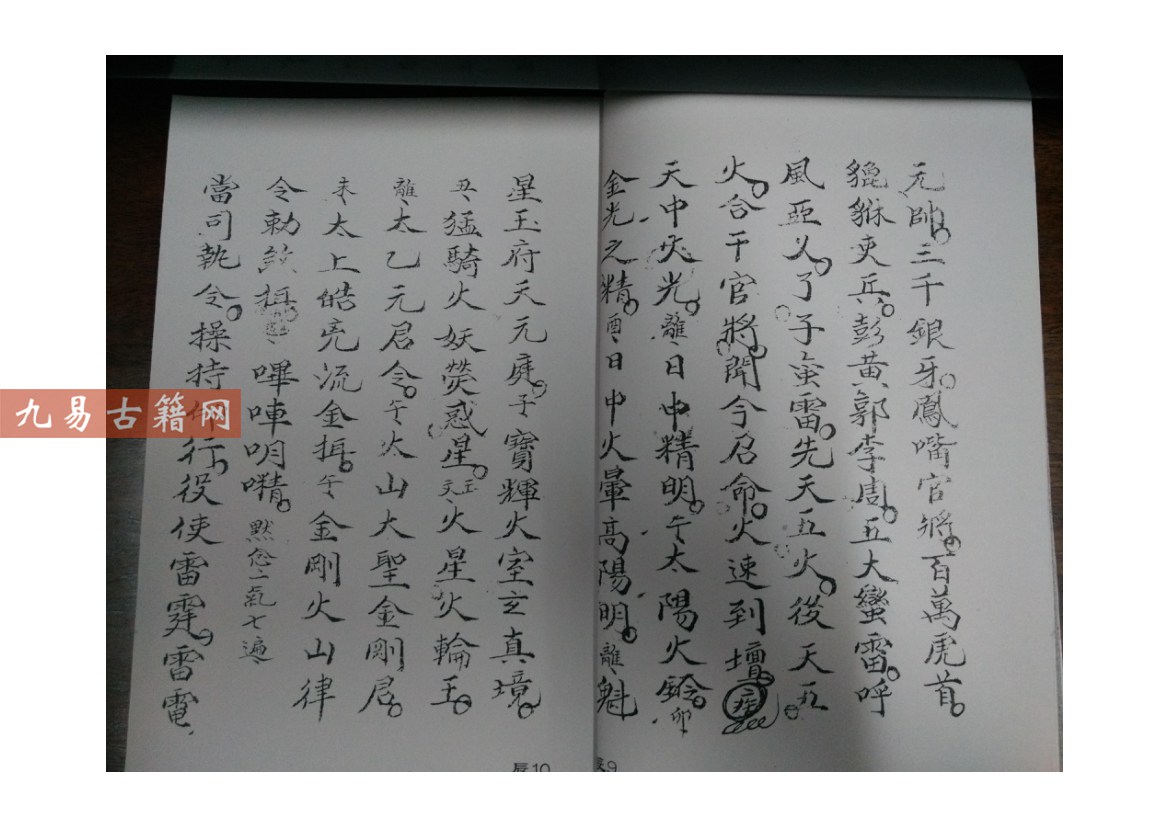 元帥三千銀牙鳳嘴官將百萬虎首
貔貅夾兵彭黃郭李周五大蠻雷呼
風亞火了子蛮雷先天五火後天五
火合干官將聞今召命火速到壇
天中火光離日中精明午太陽火鈴卯
金光之精酉日中火暈高陽明離魁
星玉府天元庭子寶輝火室玄真境
丑猛騎火妖熒惑星火星火輪王
離太乙元君令午火山大聖金剛君
未太上皓亮流金午金剛火山律
令勅嗶㖠明𠽁默念二氣七遍
當司執令操持行役使雷霆雷電
九易古籍网
辰9
辰10